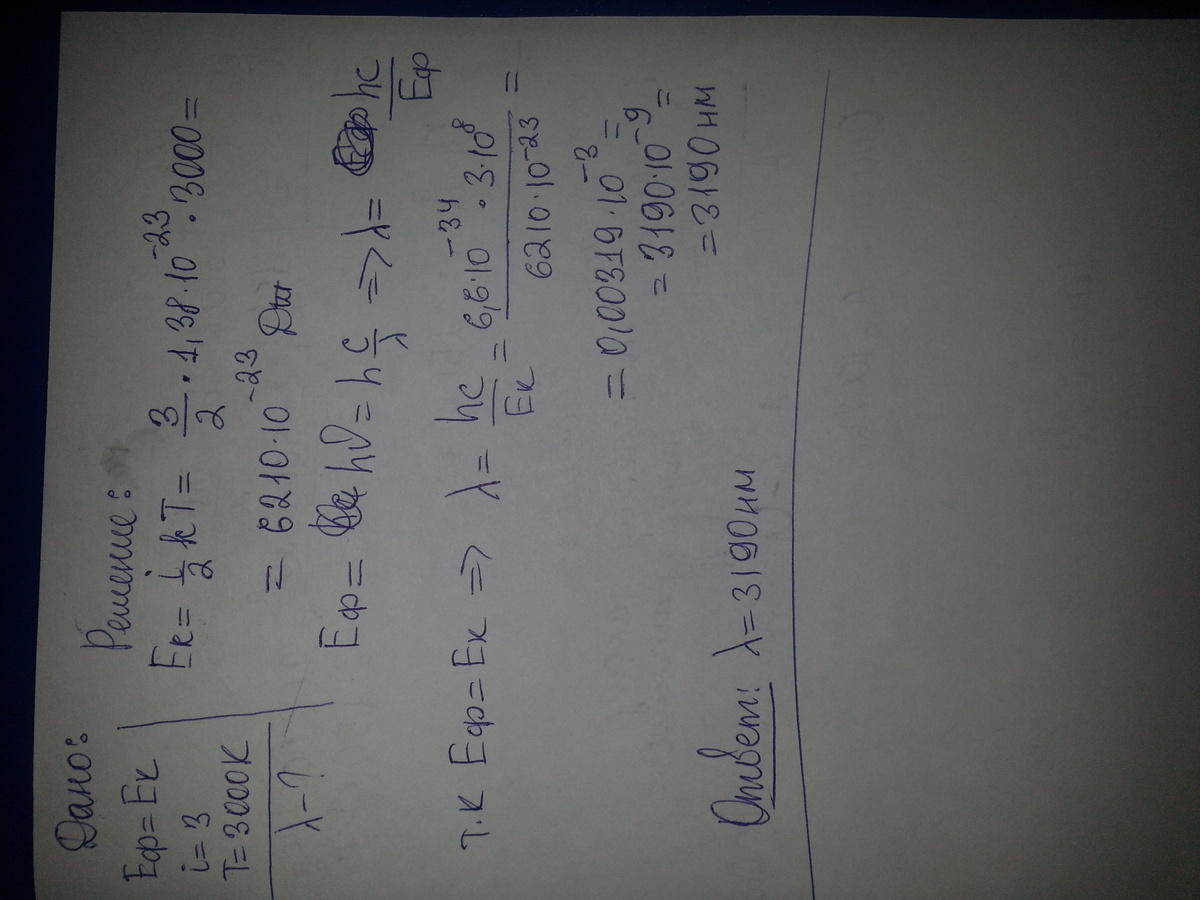 Дано:
Eф=Eк
i=3
T=3000K
λ-?
Решение:
Eк= i/2 kT= 3/2 · 1,38·10⁻²³·3000=
= 6210·10⁻²³ Дж
Eф= hν= h c/λ => λ= hc/Eф
т.к Eф=Eк => λ= hc/Eк = 6,6·10⁻³⁴·3·10⁸/6210·10⁻²³ =
= 0,00319·10⁻³ =
= 3190·10⁻⁹ =
= 3190нм
Ответ: λ=3190нм